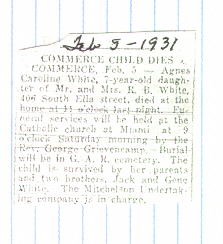 Feb 5-1931
COMMERCE CHILD DIES
COMMERCE, Feb. 5 — Agnes
Caroline White, 7-year-old daugh-
ter of Mr. and Mrs. R. B. White,
406 South Ella street, died at the
home at 11 o'clock last night. Fu-
neral services will be held at the
Catholic church at Miami at 9
o'clock Saturday morning by the
Rev. George Grievencamp. Burial
will be in G. A. R. cemetery. The
child is survived by her parents
and two brothers, Jack and Gene
White. The Mitchelson Undertak-
ing company is in charge.